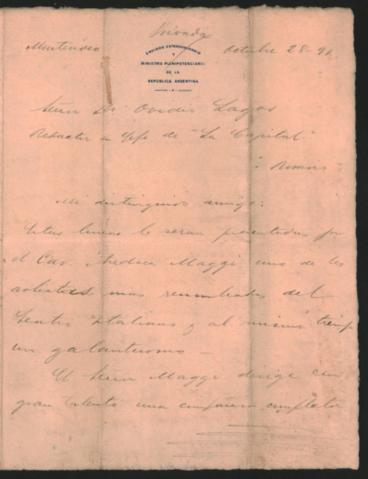 Montevideo
Octubre 28-91
ENVIADO EXTRAORDINARIO
Y
MINISTRO PLENIPOTENCIARIO
DE LA
REPÚBLICA ARGENTINA
Señor Dr Ovidio Lagos
Redactor en Gefe de "La Capital"
Rosario
Mi distinguido amigo:
Estas lineas le seran presentadas por
el Cav. Maggi uno de los
artistas mas renombrados del
Teatro Italiano y al mismo tiempo
un galantuomo —
El Señor Maggi dirige con
gran talento una compañia completa